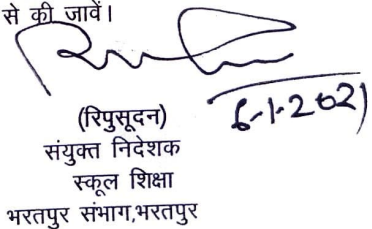 से की जावें।
6-1-2021
(रिपुसूदन)
संयुक्त निदेशक
स्कूल शिक्षा
भरतपुर संभाग,भरतपुर